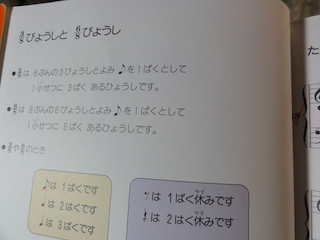 3/8びょうしと 6/8びょうし
●3/8は 8ぶんの3びょうしとよみ ♪を1ぱくとして
1小せつに 3ぱく あるひょうしです。
●6/8は 8ぶんの6びょうしとよみ ♪を1ぱくとして
1小せつに 6ぱく あるひょうしです。
●3/8や6/8のとき
♪は 1ぱくです
は 2はくです
は 3ぱくです
は 1ぱく休みです
は 2はく休みです
た